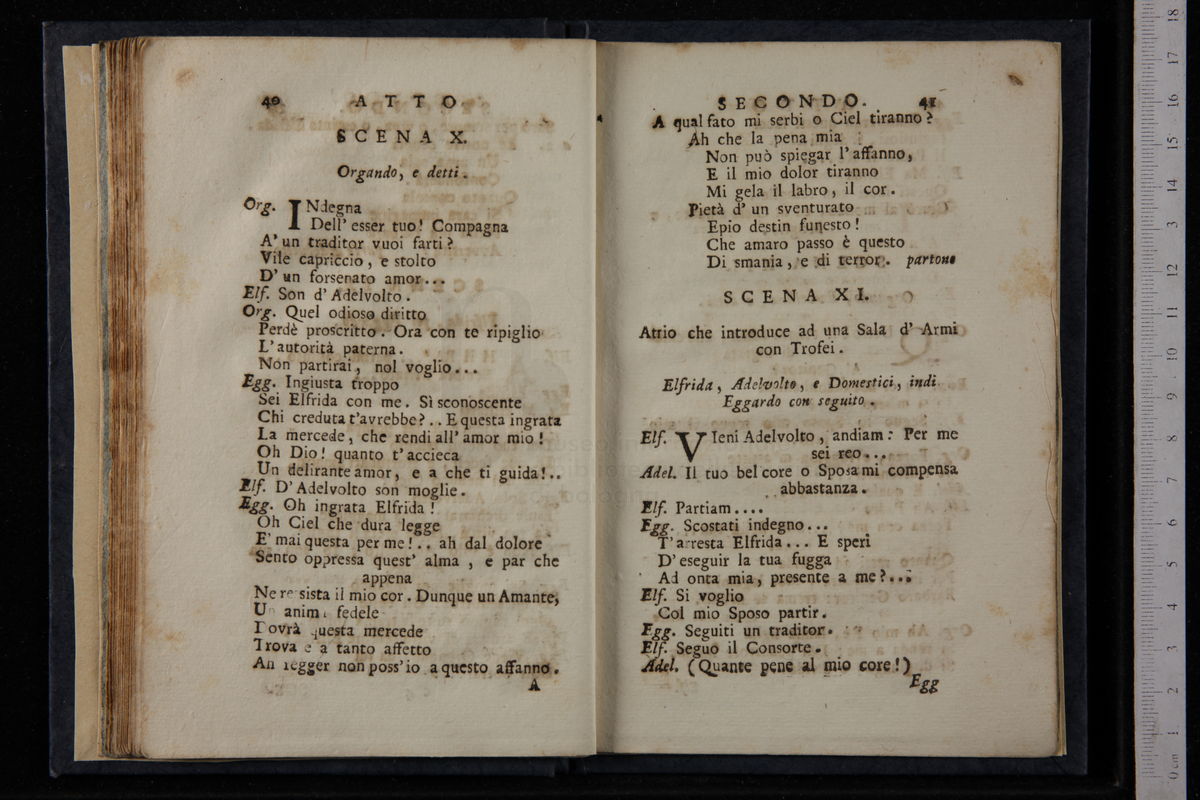 40 ATTO
SCENA X.
Orgando, e detti.
Org. INdegna
Dell' esser tuo! Compagna
A' un traditor vuoi farti?
Vile capriccio, e stolto
D' un forsenato amor...
Elf. Son d' Adelvolto.
Org. Quel odioso diritto
Perdè proscritto. Ora con te ripiglio
L' autorità paterna.
Non partirai, nol voglio...
Egg. Ingiusta troppo
Sei Elfrida con me. Sì sconoscente
Chi creduta t'avrebbe?.. E questa ingrata
La mercede, che rendi all' amor mio!
Oh Dio! quanto t' accieca
Un delirante amor, e a che ti guida!..
Elf. D' Adelvolto son moglie.
Egg. Oh ingrata Elfrida!
Oh Ciel che dura legge
E' mai questa per me!.. ah dal dolore
Sento oppressa quest' alma, e par che
appena
Ne resista il mio cor. Dunque un Amante,
Un anima fedele
Dovrà questa mercede
Trova e a tanto affetto
Ah regger non poss' io a questo affanno.
A
SECONDO. 41
A qual fato mi serbi o Ciel tiranno?
Ah che la pena mia
Non può spiegar l' affanno,
E il mio dolor tiranno
Mi gela il labro, il cor.
Pietà d' un sventurato
Epio destin funesto!
Che amaro passo è questo
Di smania, e di terror. partono
SCENA XI.
Atrio che introduce ad una Sala d' Armi
con Trofei.
Elfrida, Adelvolto, e Domestici, indi
Eggardo con seguito.
Elf. VIeni Adelvolto, andiam: Per me
sei reo...
Adel. Il tuo bel core o Sposa mi compensa
abbastanza.
Elf. Partiam....
Egg. Scostati indegno...
T' arresta Elfrida... E speri
D' eseguir la tua fugga
Ad onta mia, presente a me?...
Elf. Si voglio
Col mio Sposo partir.
Egg. Seguiti un traditor.
Elf. Seguo il Consorte.
Adel. (Quante pene al mio core!)
Egg
0 cm 1 2 3 4 5 6 7 8 9 10 11 12 13 14 15 16 17 18